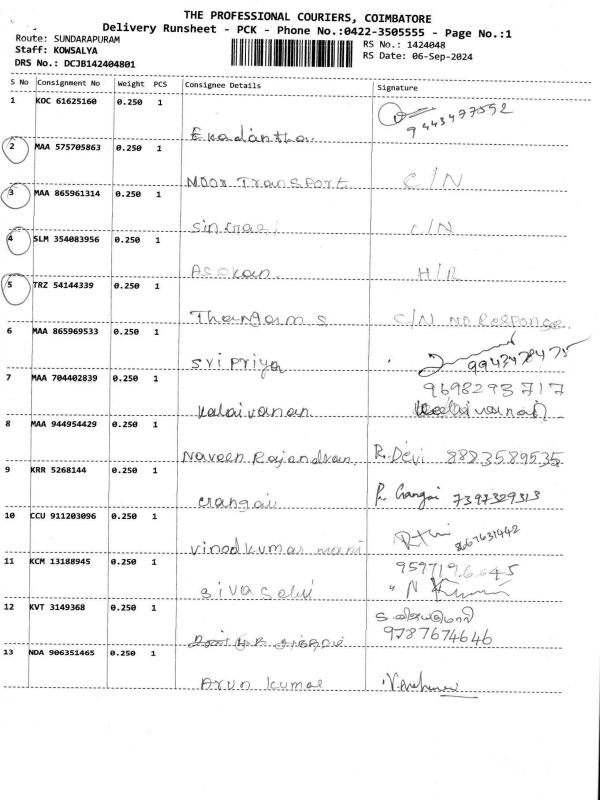 THE PROFESSIONAL COURIERS, COIMBATORE
Delivery Runsheet - PCK - Phone No.:0422-3505555 - Page No.:1
Route: SUNDARAPURAM
Staff: KOWSALYA
DRS No.: DCJB142404801
RS No.: 1424048
RS Date: 06-Sep-2024
S No Consignment No Weight PCS Consignee Details Signature
1 KOC 61625160 0.250 1
Ekadantha 9443497592
2 MAA 575705863 0.250 1
Noor Transport C/N
3 MAA 865961314 0.250 1
C/N
4 SLM 354083956 0.250 1
Asokan H/R
5 TRZ 54144339 0.250 1
Thangam s C/N No Response
6 MAA 865969533 0.250 1
Sri Priya 9943478475
7 MAA 704402839 0.250 1
9698293717
Kalaivanan
8 MAA 944954429 0.250 1
Naveen Rajendran R. Devi 8883589535
9 KRR 5268144 0.250 1
Gangai Gangai 7397329313
10 CCU 911203096 0.250 1
Vinod kumar mani 8667631442
11 KCM 13188945 0.250 1
N Kumar
12 KVT 3149368 0.250 1
9787674646
13 NDA 906351465 0.250 1
Arun kumar